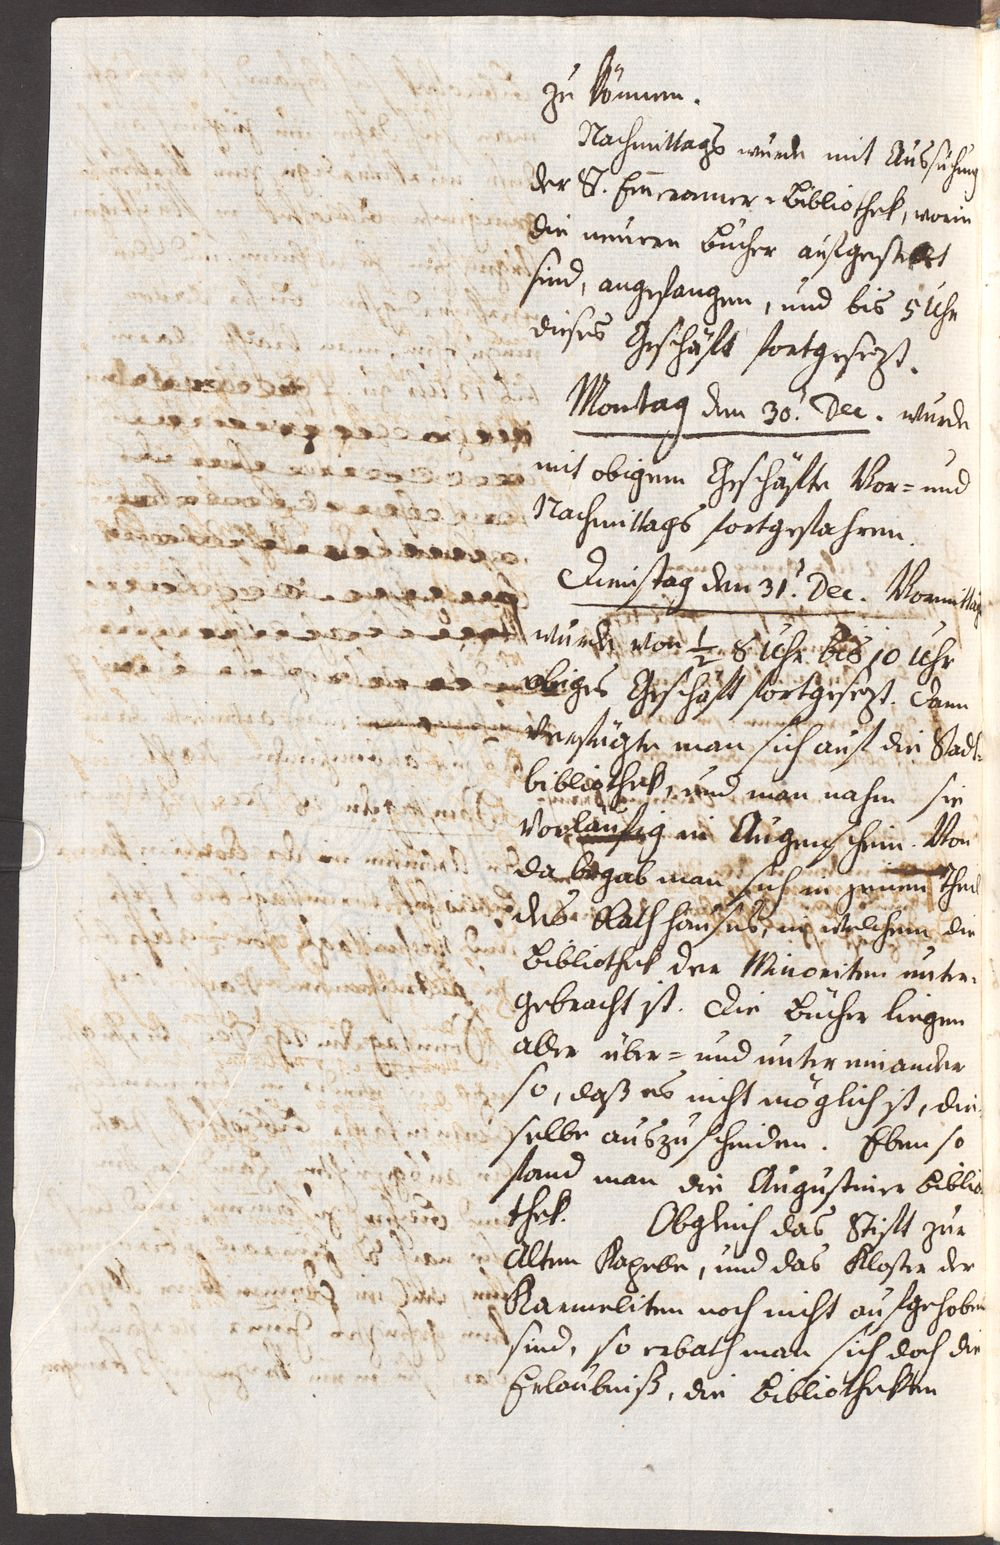 zu können.
Nachmittags wurde mit Aussuchung
der St. Emmeramer=Bibliothek, worin
die neuern Bücher aufgestellt
sind, angefangen, und bis 5 Uhr
dieses Geschäft fortgesezt.
Montag den 30. Dec. wurde
mit obigem Geschäfte Vor= und
Nachmittags fortgefahren.
Dienstag den 31. Dec. Vormittag
wurde von 1/2 8 Uhr bis 10 Uhr
obiges Geschäft fortgesezt. Dann
verfügte man sich auf die Stadt=
bibliothek, und man nahm sie
vorläufig in Augenschein. Von
da begab man sich in jenen Theil
des Rathhauses, in welchem die
Bibliothek der Minoriten unter=
gebracht ist. Die Bücher liegen
aber über= und unter einander
so, daß es nicht möglich ist, die=
selbe auszuscheiden. Eben so
fand man die Augustiner Biblio
thek. Obgleich das Stift zur
Alten Kapelle, und das Kloster der
Karmeliten noch nicht aufgehoben
sind, so erbath man sich doch die
Erlaubniß, die Bibliotheken